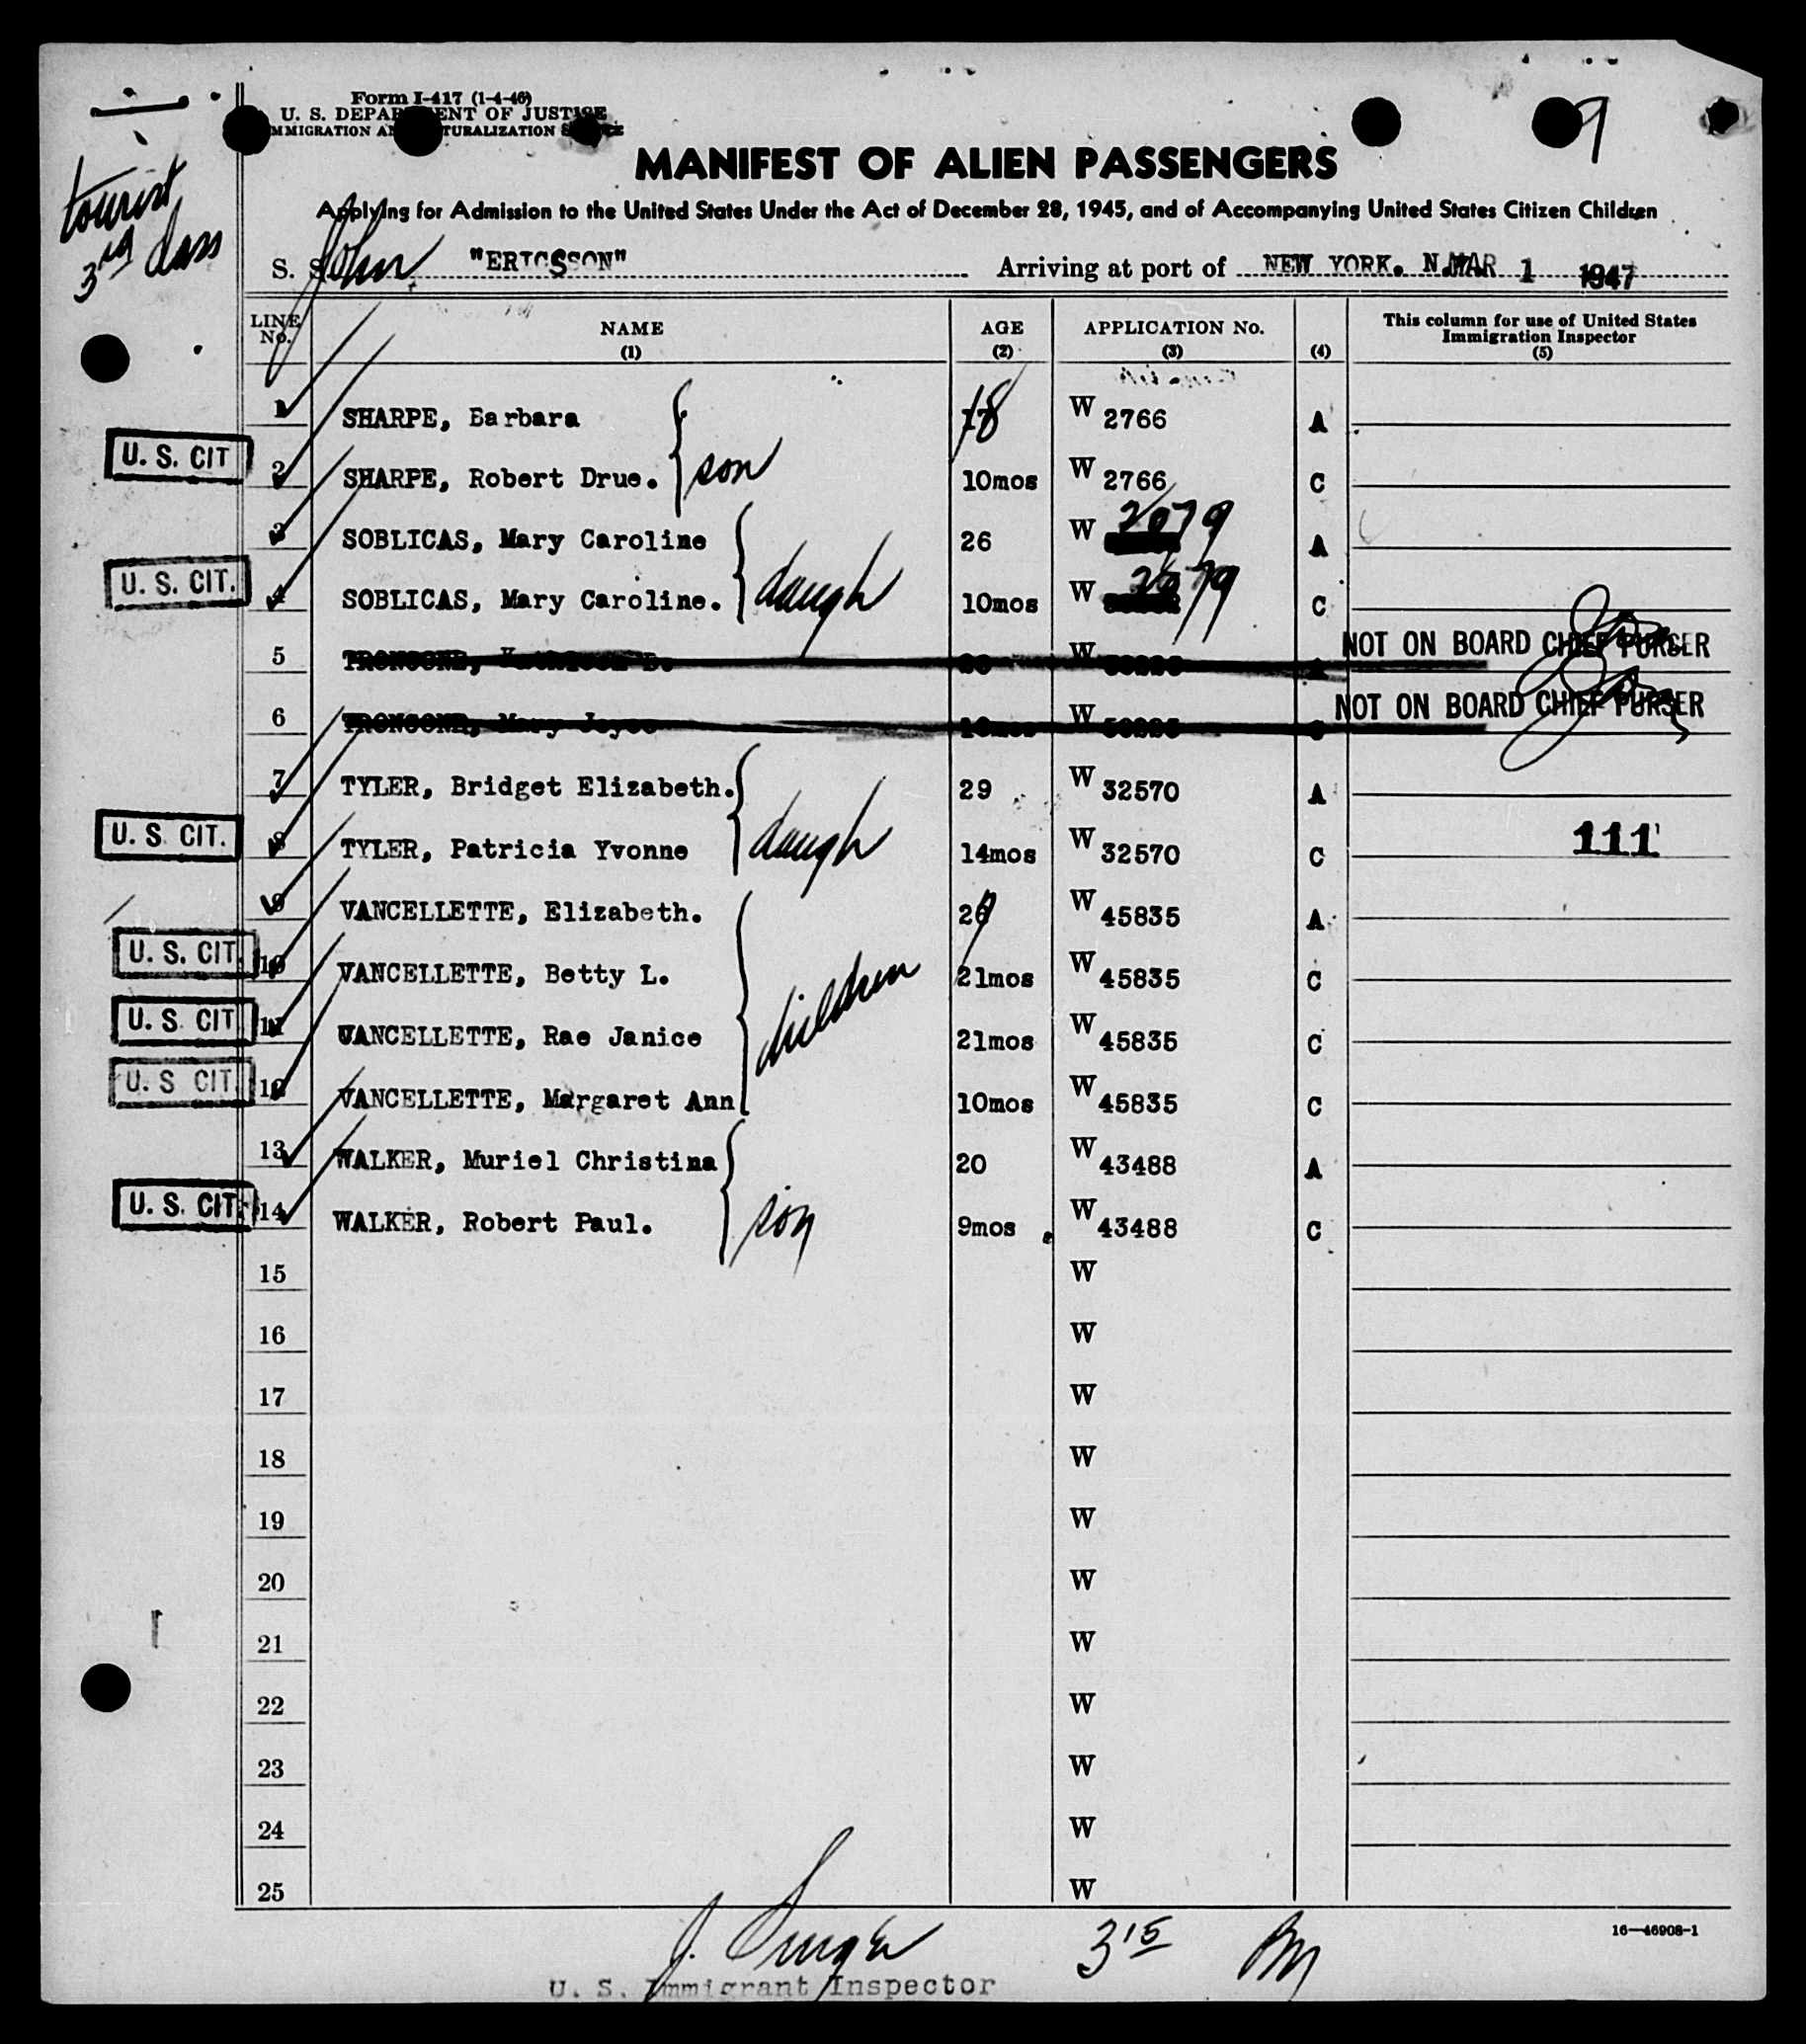 Form I-417 (1-4-46)
U. S. DEPARTMENT OF JUSTICE
IMMIGRATION AND NATURALIZATION SERVICE
9
MANIFEST OF ALIEN PASSENGERS
Applying for Admission to the United States Under the Act of December 28, 1945, and of Accompanying United States Citizen Children
tourist
3rd class
S. S. John "ERICSSON" Arriving at port of NEW YORK. N.Y. MAR 1 1947
LINE No. NAME (1) AGE (2) APPLICATION No. (3) (4) This column for use of United States Immigration Inspector (5)
1 SHARPE, Barbara 18 W 2766 A
U. S. CIT 2 SHARPE, Robert Drue. son 10mos W 2766 C
3 SOBLICAS, Mary Caroline 26 W 2079 A
U. S. CIT. 4 SOBLICAS, Mary Caroline. daugh 10mos W 2079 C
5 W NOT ON BOARD CHIEF PURSER
6 Mary Joyce W NOT ON BOARD CHIEF PURSER
7 TYLER, Bridget Elizabeth. 29 W 32570 A
U. S. CIT. 8 TYLER, Patricia Yvonne daugh 14mos W 32570 C 111
9 VANCELLETTE, Elizabeth. W 45835 A
U. S. CIT. 10 VANCELLETTE, Betty L. 21mos W 45835 C
U. S. CIT 11 VANCELLETTE, Rae Janice children 21mos W 45835 C
U. S CIT. 12 VANCELLETTE, Margaret Ann 10mos W 45835 C
13 WALKER, Muriel Christina 20 W 43488 A
U. S. CIT. 14 WALKER, Robert Paul. son 9mos. W 43488 C
15 W
16 W
17 W
18 W
19 W
20 W
21 W
22 W
23 W
24 W
25 W
16—46908-1
J. 3 15 PM
U. S. Immigrant Inspector